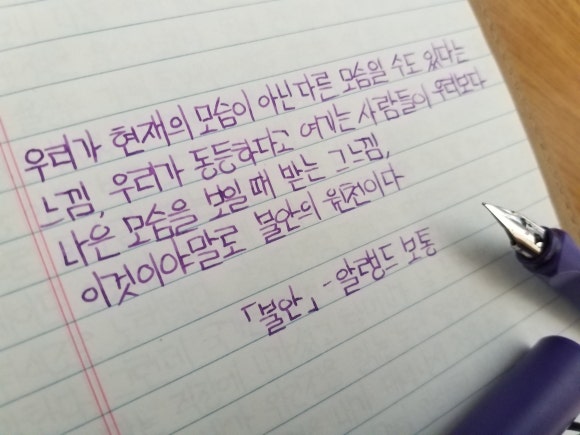 우리가 현재의 모습이 아닌 다른 모습일 수도 있다는
느낌, 우리가 동등하다고 여기는 사람들이 우리보다
나은 모습을 보일 때 받는 그 느낌,
이것이야말로 불안의 원천이다
「불안」 - 알랭드 보통